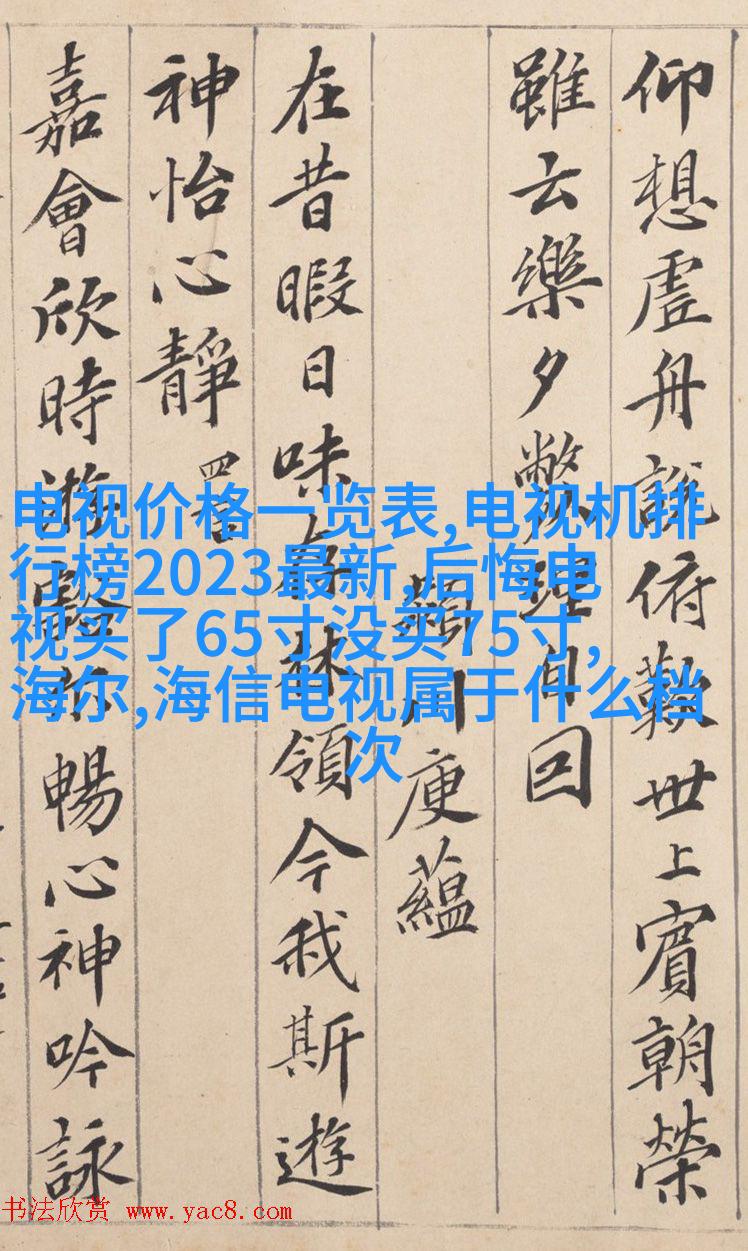 仰想虛舟說俯歎世上賓朝榮
雖云樂夕弊理自回
川庾蘊
在昔暇日味存林領今我斯遊
神怡心靜 四言
嘉會欣時游豁尔暢心神吟詠
电视价格一览表,电视机排
行榜2023最新,后悔电
视买了65寸没买75寸,
海尔,海信电视属于什么档
次
书法欣赏 www.yac8.com